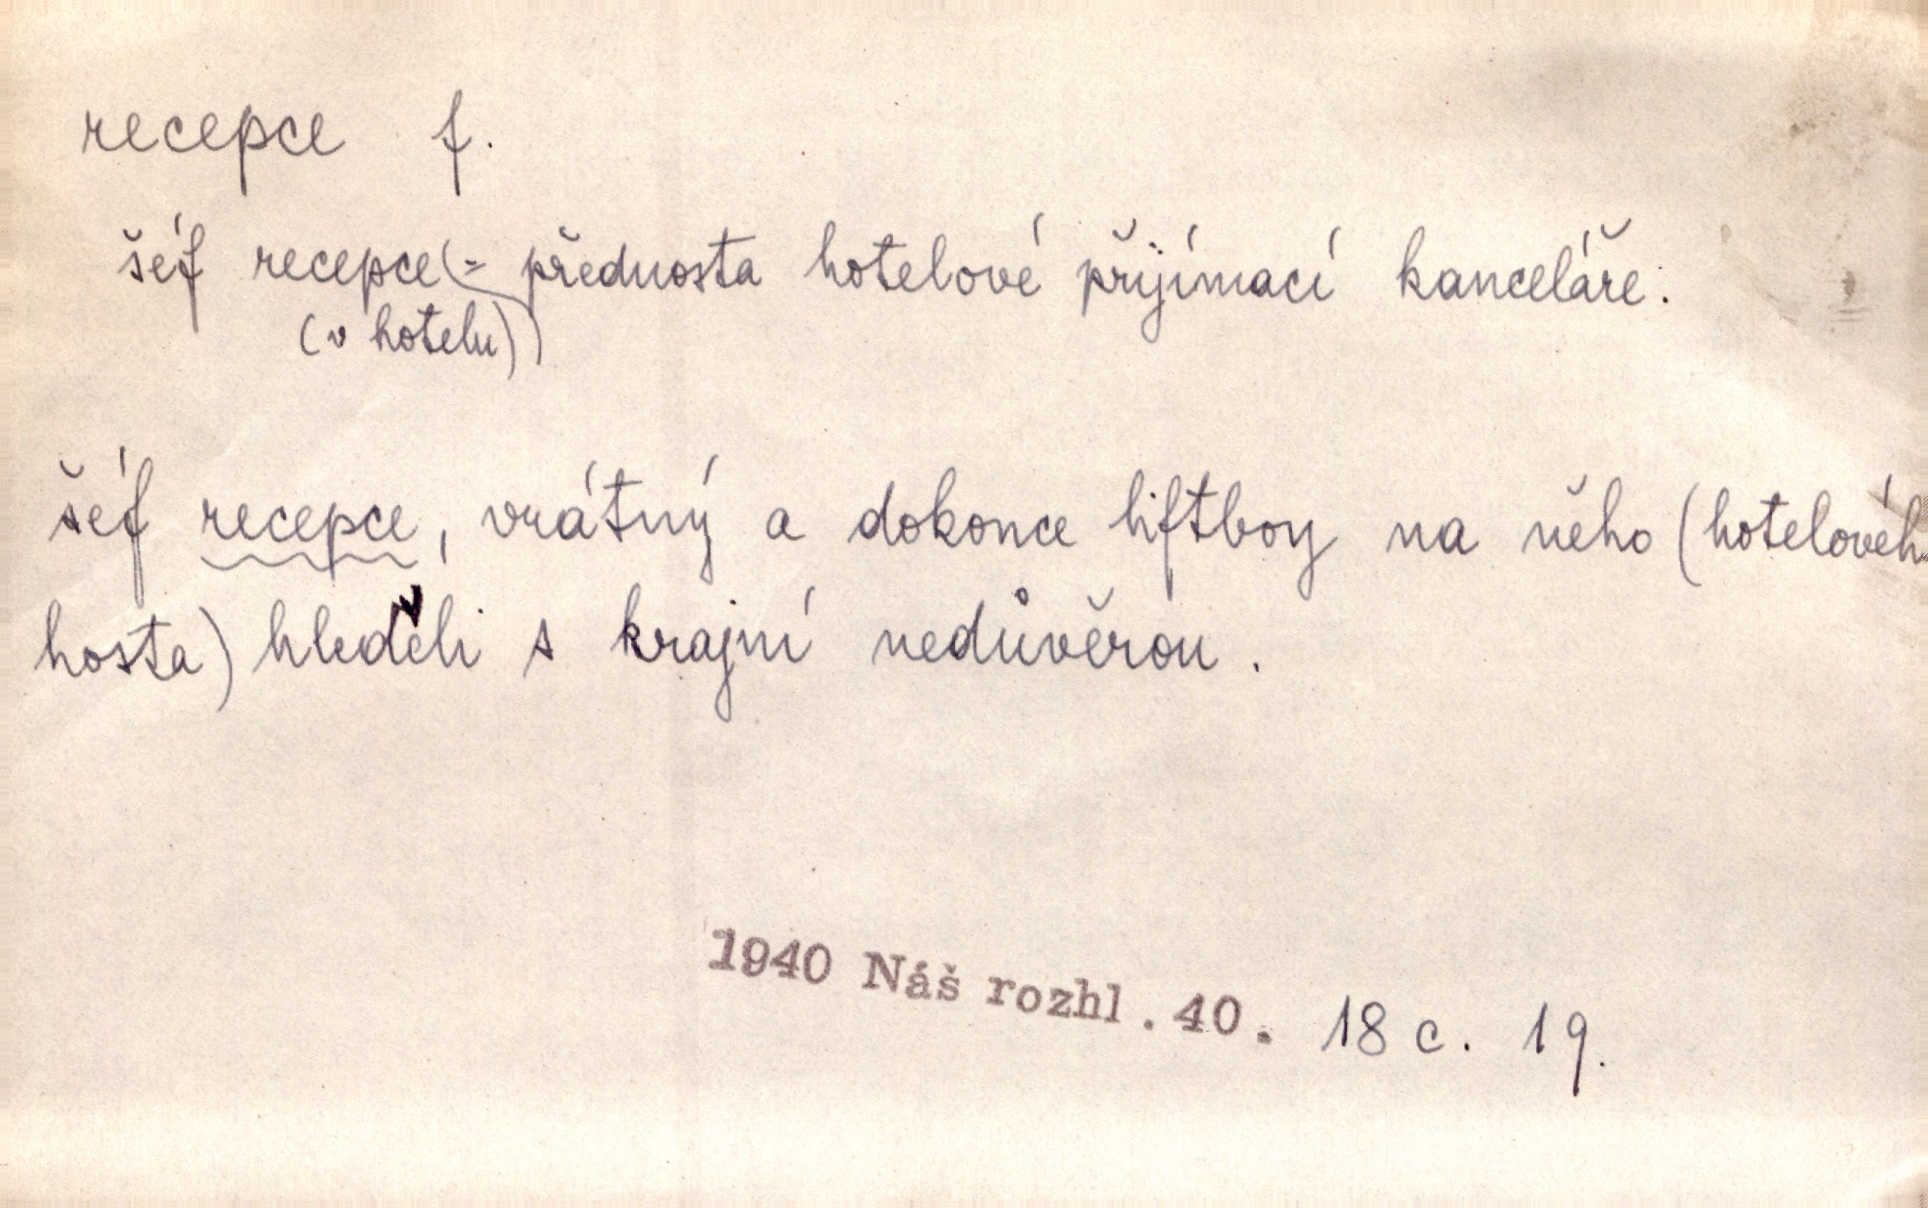 recepce f.
šéf recepce (= přednosta hotelové přijímací kanceláře.
(v hotelu))
šéf recepce, vrátný a dokonce liftboy na něho (hotelovéh
hosta) hleděli s krajní nedůvěrou.
1940 Náš rozhl. 40. 18 c. 19.